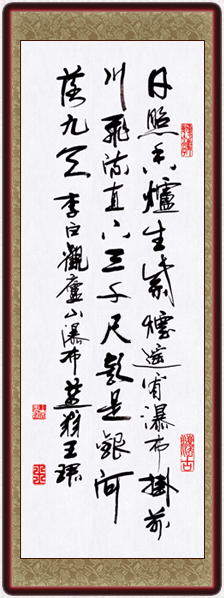 日照香爐生紫煙遥看瀑布掛前
川飛流直下三千尺疑是銀河
落九天 李白觀廬山瀑布